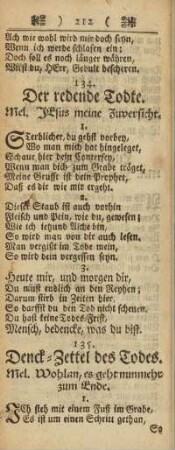 212
Ach wie wohl wird mir doch seyn,
Wenn ich werde schlafen ein;
Doch soll es noch länger währen,
Wirst du, HErr, Gedult bescheren.
134.
Der redende Todte.
Mel. JEsus meine Zuversicht.
1.
STerblicher, du gehst vorbey,
Wo man mich hat hingeleget,
Schaue hier dein Conterfey,
Wenn man dich zum Grabe träget,
Meine Grufft ist dein Prophet,
Daß es dir wie mir ergeht.
2.
Dieser Staub ist auch vorhin
Fleisch und Pein, wie du, gewesen;
Wie ich ietzund Nichts bin,
So wird man von dir auch lesen.
Man vergißt im Tode mein,
So wird dein vergessen seyn.
3.
Heute mir, und morgen dir,
Du must endlich an den Reyhen;
Darum stirb in Zeiten hier.
So darffst du den Tod nicht scheuen.
Du hast keine Todes-Frist,
Mensch, bedencke, was du bist.
135.
Denck-Zettel des Todes.
Mel. Wohlan, es geht nunmehr
zum Ende.
1.
ICh steh mit einem Fuß im Grabe,
Es ist um einen Schritt gethan,
So